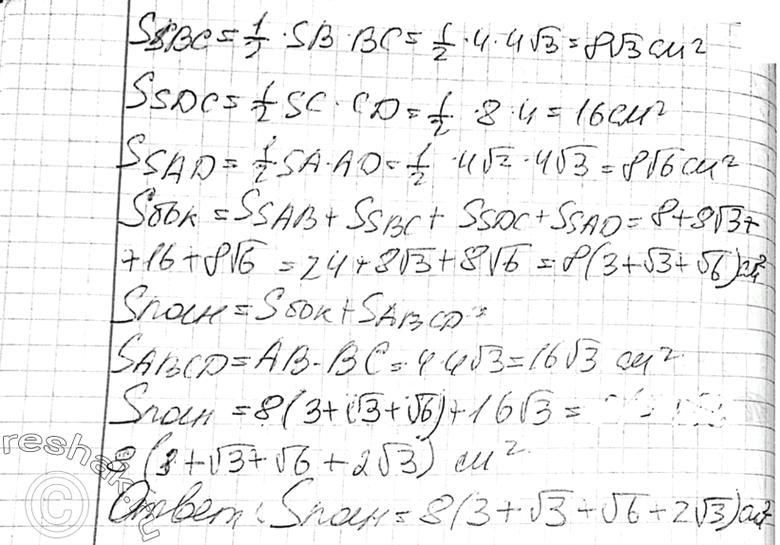 S_SBC = 1/2 · SB · BC = 1/2 · 4 · 4√3 = 8√3 см²
S_SDC = 1/2 SC · CD = 1/2 · 8 · 4 = 16 см²
S_SAD = 1/2 SA · AD = 1/2 · 4√2 · 4√3 = 8√6 см²
Sбок = S_SAB + S_SBC + S_SDC + S_SAD = 8 + 8√3 +
+ 16 + 8√6 = 24 + 8√3 + 8√6 = 8(3 + √3 + √6) см²
Sполн = Sбок + S_ABCD =
S_ABCD = AB · BC = 4 · 4√3 = 16√3 см²
Sполн = 8(3 + √3 + √6) + 16√3 =
8(3 + √3 + √6 + 2√3) см²
Ответ: Sполн = 8(3 + √3 + √6 + 2√3) см²
reshak.ru
©